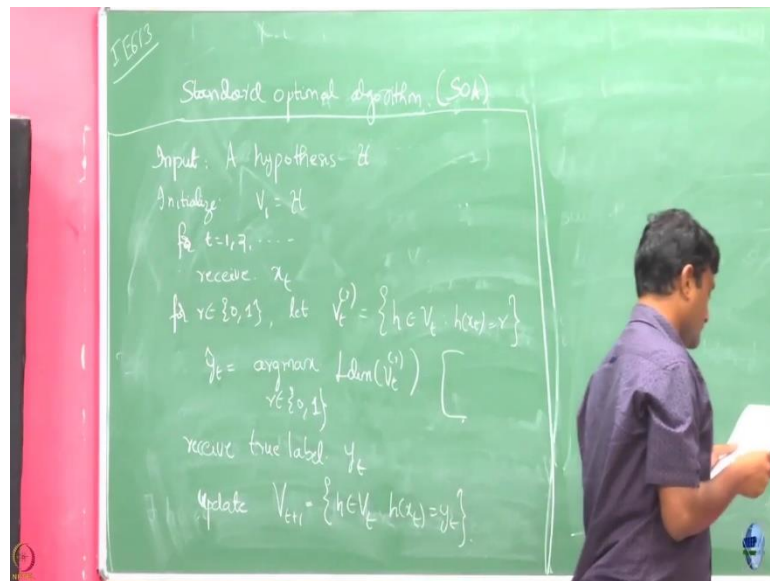 IE613
Standard optimal algorithm. (SOA)
Input: A hypothesis - H
Initialize: V₁ = H
for t=1,2,....
receive x_t
for r∈{0,1}, let V_t^(r) = {h∈V_t : h(x_t)=r}
ŷ_t = argmax Ldim(V_t^(r)) [
r∈{0,1}
receive true label y_t
update V_{t+1} = {h∈V_t h(x_t)=y_t}.